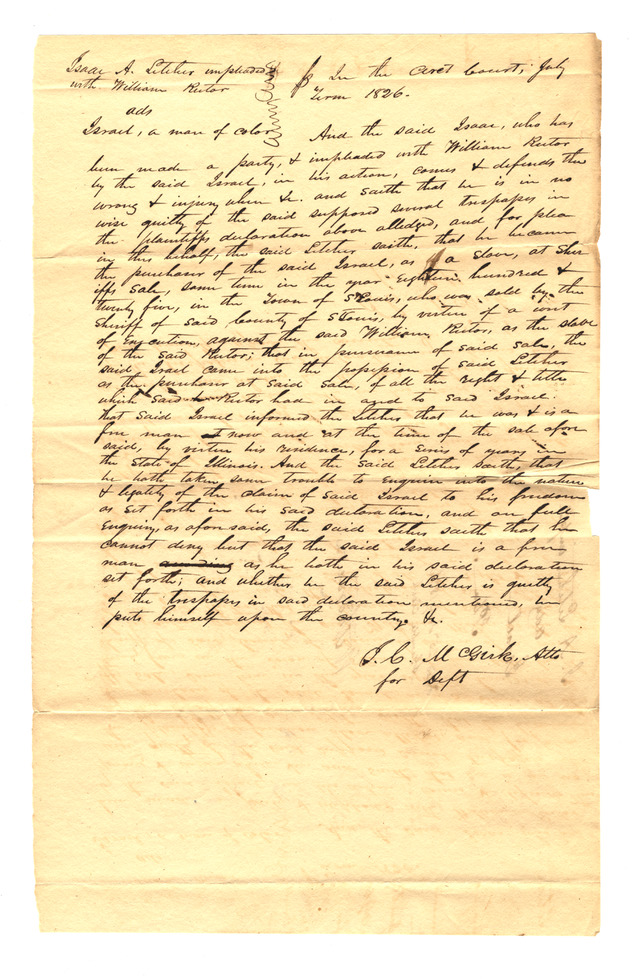 Isaac A. Letcher impleaded
with William Rector
ads
Israel, a man of color
In the Circt Court, July
Term 1826.
And the said Isaac, who has
been made a party, & impleaded with William Rector
by the said Israel, in his action, comes & defends the
wrong & injury when &c. and saith that he is in no
wise guilty of the said supposed several trespasses in
the plaintiffs declaration above alledged, and for plea
in this behalf, the said Letcher saith, that he became
the purchaser of the said Israel, as a slave, at Sher
iffs sale, some time in the year Eighteen hundred &
twenty five, in the Town of St Louis, who was sold by the
Sheriff of said County of St Louis, by virtue of a writ
of Execution, against the said William Rector, as the slave
of the said Rector; that in pursuance of said sale, the
said Israel came into the possession of said Letcher
as the purchaser at said sale, of all the right & title
which said Rector had in and to said Israel.
that said Israel informed the Letcher that he was & is a
free man now and at the time of the sale afore
said, by virtue his residence, for a series of years, in
the State of Illinois. And the said Letcher saith, that
he hath taken some trouble to enquire into the nature
& legality of the claim of said Israel to his freedom
as set forth in his said declaration, and on full
enquiry, as aforesaid, the said Letcher saith that he
cannot deny but that the said Israel is a free
man as he hath in his said declaration
set forth; and whether he the said Letcher is guilty
of the trespasses in said declaration mentioned, he
puts himself upon the country &c.
I. C. McGirk, Atto
for Deft